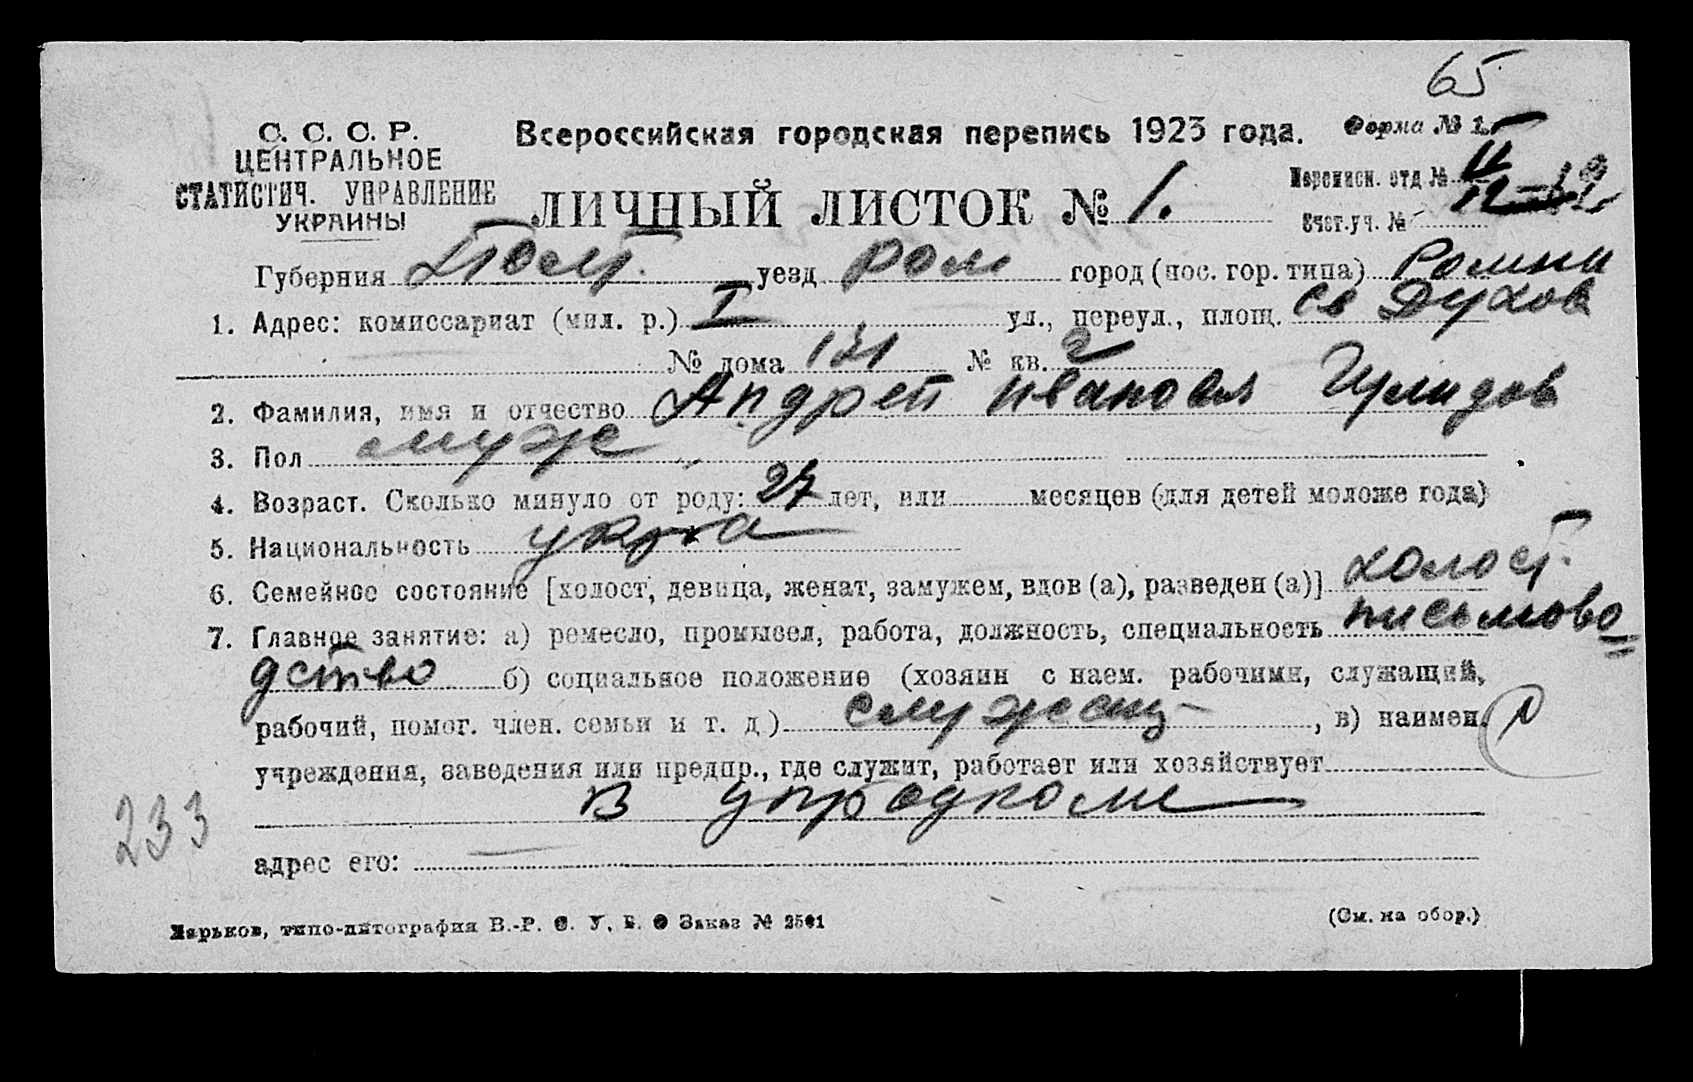 65
С. С. С. Р.
ЦЕНТРАЛЬНОЕ
СТАТИСТИЧ. УПРАВЛЕНИЕ
УКРАИНЫ
Всероссийская городская перепись 1923 года.
Форма № 1.
ЛИЧНЫЙ ЛИСТОК № 1.
Переписн. отд №
Счет.уч. №
Губерния Полт. уезд Ром город (пос. гор. типа) Ромны
1. Адрес: комиссариат (мил. р.) I ул., переул., площ. Св Духов
№ дома 131 № кв. 2
2. Фамилия, имя и отчество Андрей Иванов
3. Пол муж
4. Возраст. Сколько минуло от роду: 27 лет, или месяцев (для детей моложе года)
5. Национальность
6. Семейное состояние [холост, девица, женат, замужем, вдов (а), разведен (а)] холост.
7. Главное занятие: а) ремесло, промысел, работа, должность, специальность письмово=
дство б) социальное положение (хозяин с наем. рабочими, служащий,
рабочий, помог. член. семьи и т. д.) служащ , в) наимен.
учреждения, заведения или предпр., где служит, работает или хозяйствует
в упродкоме
233
адрес его:
Харьков, типо-литография В.-Р. Заказ №
(См. на обор.)